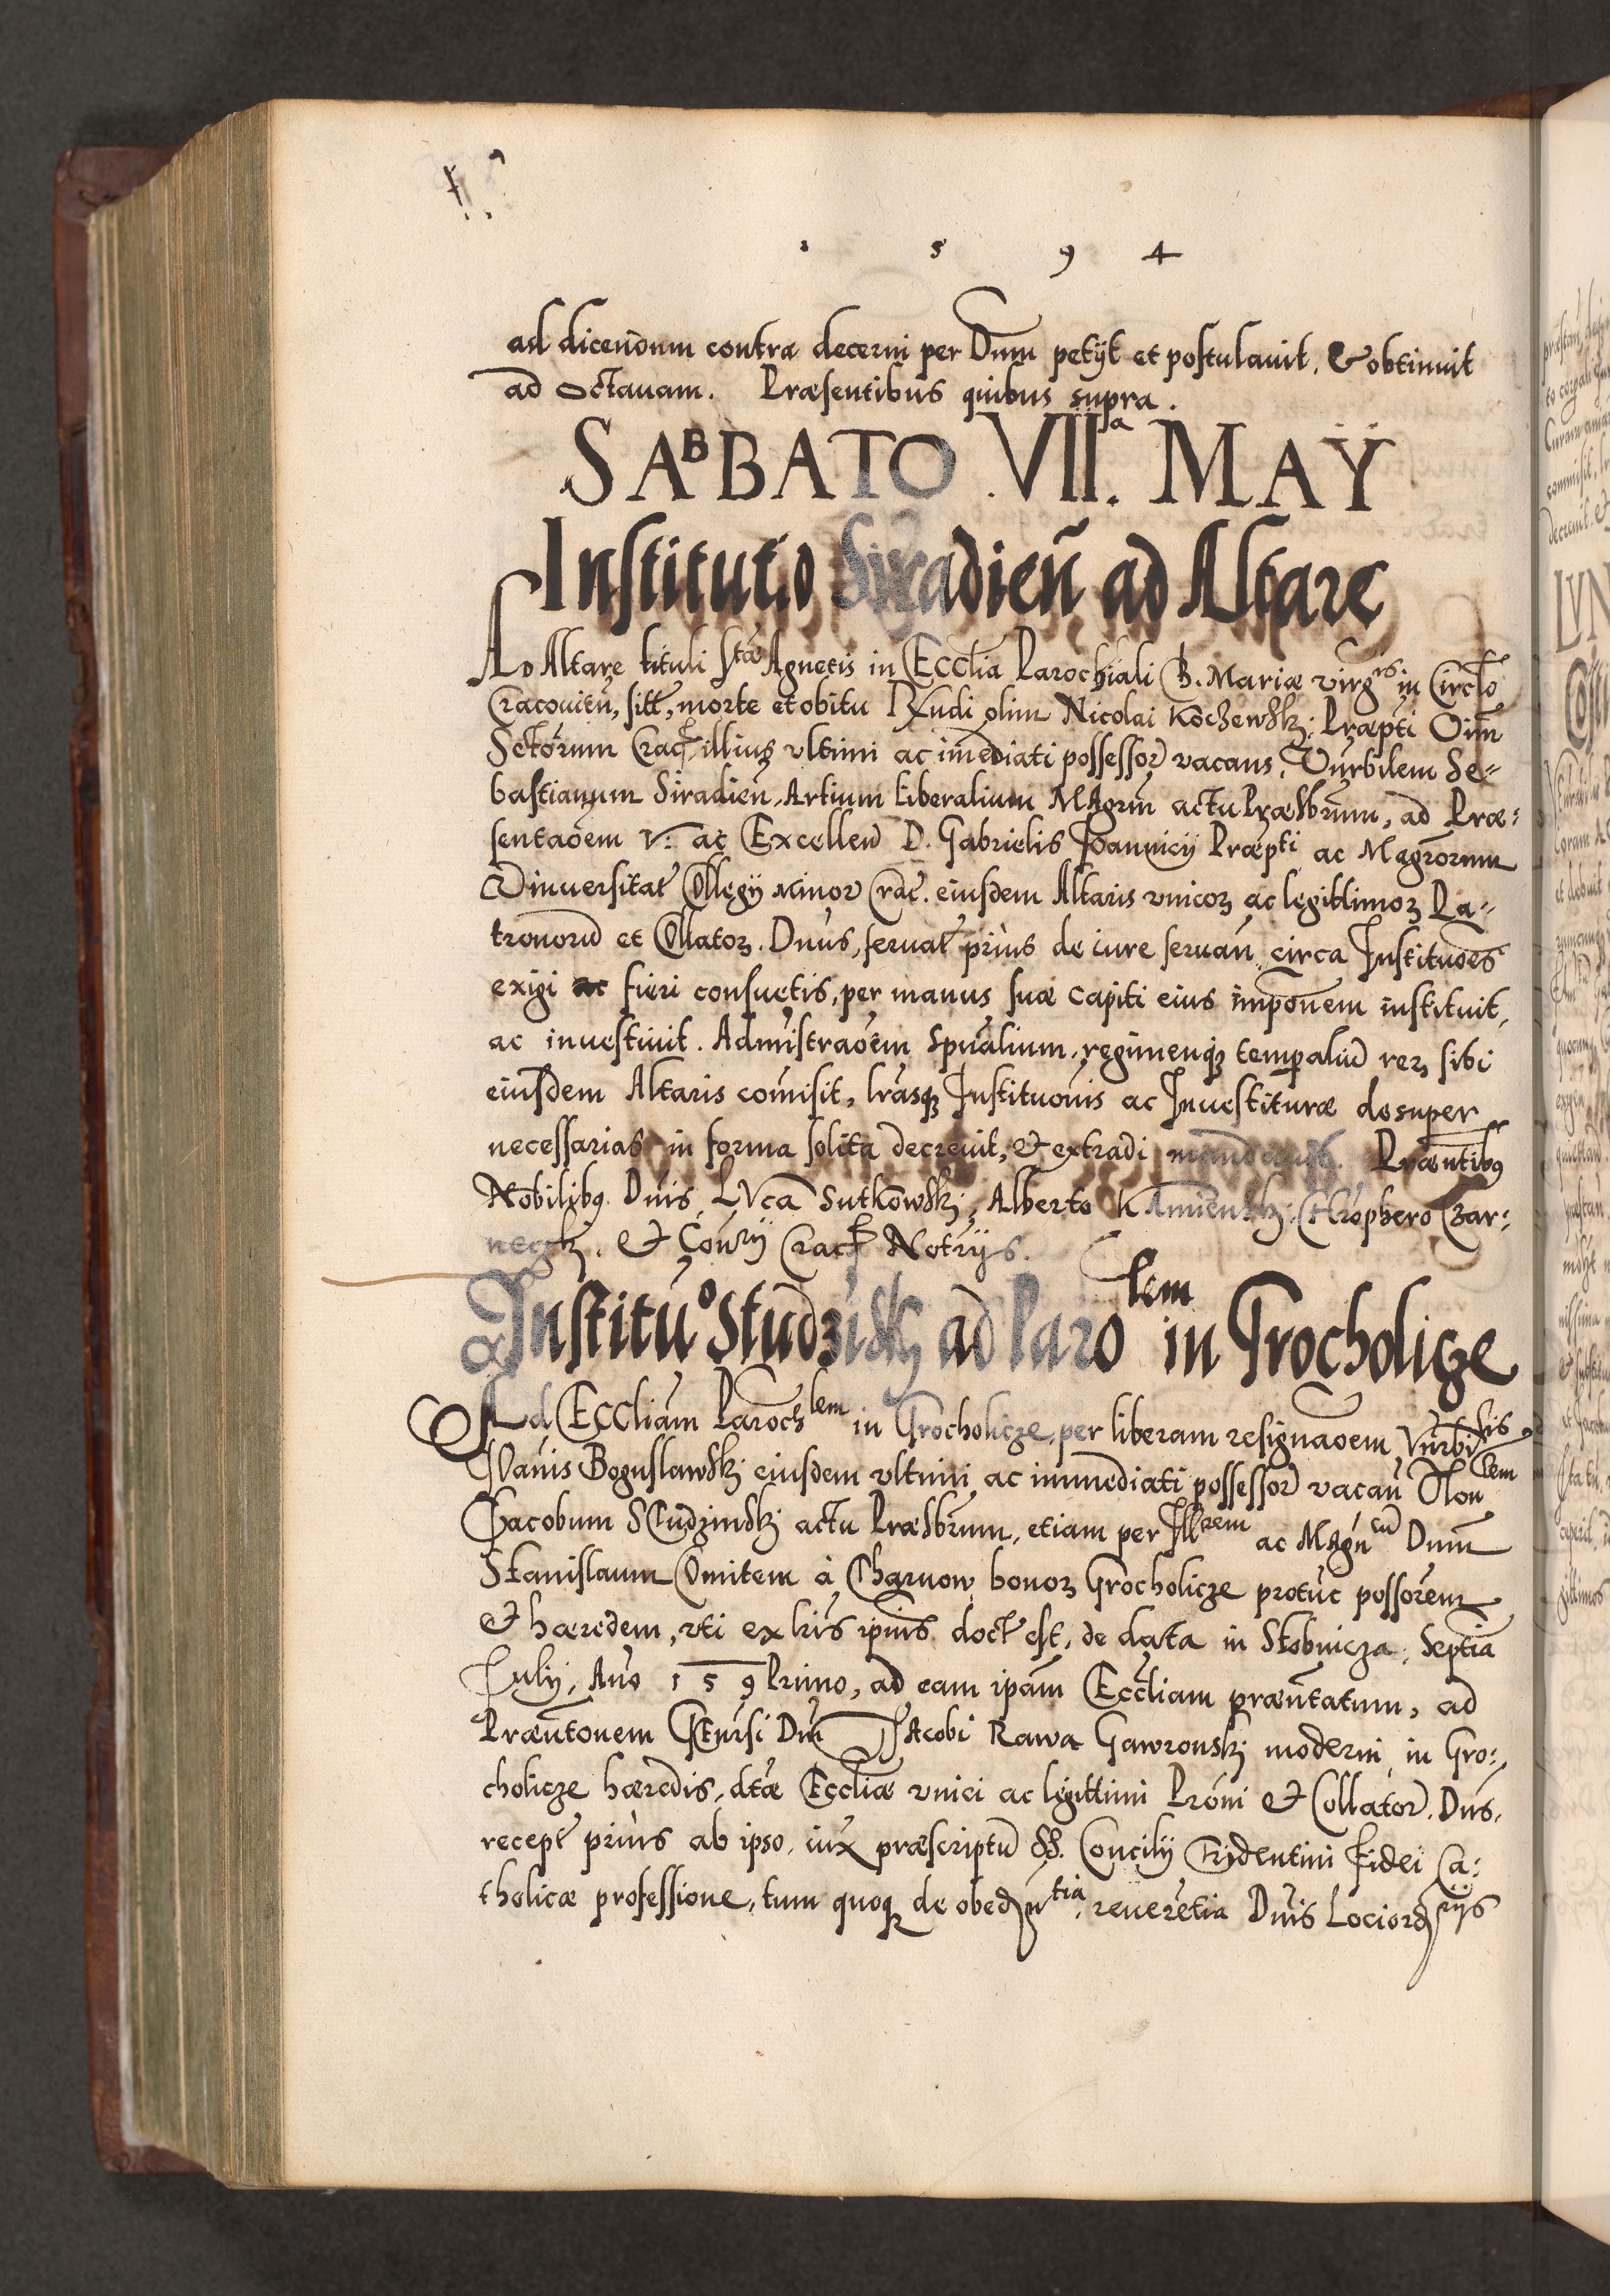 1 5 9 4
ad dicendum contra decerni per Dnm petÿt et postulavit. & obtinuit
ad octavam. Præsentibus quibus supra.
SABBATO VII.a MAŸ
Institutio Siradień ad Altare
Ad Altare tituli Stæ Agnetis in Ecclia Parochiali B. Mariæ virgnis in Circło
Cracovień, sitt, morte et obitu Rndi olim Nicolai Kochewskj: Præpti Oim
Sctorum Crac: illius ultimi ac imediati possessor vacans, Vnrbilem Se=
bastianum Siradień, Artium Liberalium MAgrm actu Præsbrum, ad Præ:
sentaoem V: ac Excellen D. Gabrielis Joannicÿ Præpti ac Magrorum
Vniversitat Collegÿ Minor Crac. eiusdem Altaris unicoꝝ ac legittimoꝝ Pa=
tronorū et Collatoꝝ. Dnus, servat prius de iure servań circa Instituoēs
exigi ac fieri consuetis, per manus suæ capiti eius imponem instituit,
ac investivit. Admistraoem spnalium, regimenqȝ temporaliū reꝝ sibi
eiusdem Altaris comisit, lrasqȝ Instituonis ac Investituræ desuper
necessarias in forma solita decrevit, & extradi mandavit. Præntibȝ
Nobilibȝ Dnis LVca Sutkowskj, Alberto KAmienskj: Chrōphero Czar:
neczkj. & Con̄rÿ Crac Notrÿs.
Instituo Studzinskj ad Parolem in Grocholicze
Ad ECCliam Parochlem in Grocholicze, per liberam resignaoem Vnrbilis
Joanis Boguslawskj eiusdem ultimi ac immediati possessor vacań Honlem
Jacobum Studzinskj actu Præsbrum, etiam per Illrem ac MAgncū Dnum
Stanislaum Comitem à Tharnow bonoꝝ Grocholicze protūc possorem
& hæredem, uti ex lris ipius doct est, de data in Stobnicza, Septia
Julÿ, Ano 1 5 9 Primo, ad eam ipam Eccliam præntatum, ad
Præntonem Gnrsi Dni JAcobi Rawa Gawronskj moderni in Gro:
cholicze hæredis, dtæ Eccliæ unici ac legittimi Prōni & Collator. Dnus,
recept prius ab ipso, iux præscriptū SS. Concilÿ Tridentini Fidei Ca:
tholicæ professione, tum quoqȝ de obedntia, reverētia Dnis Lociordrÿs